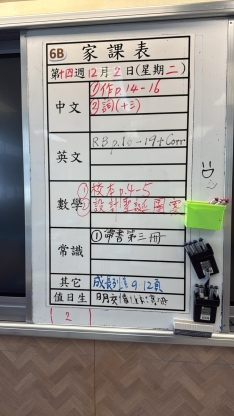 6B 家課表
第十四週12月2日(星期二)
中文
①作p.14-16
②詞(十三)
英文
RB p.10-19+Corr
數學
①校本p.4-5
②設計聖誕圖案
常識
①帶書第三冊
其它
成長列車9,12頁
值日生
(2)